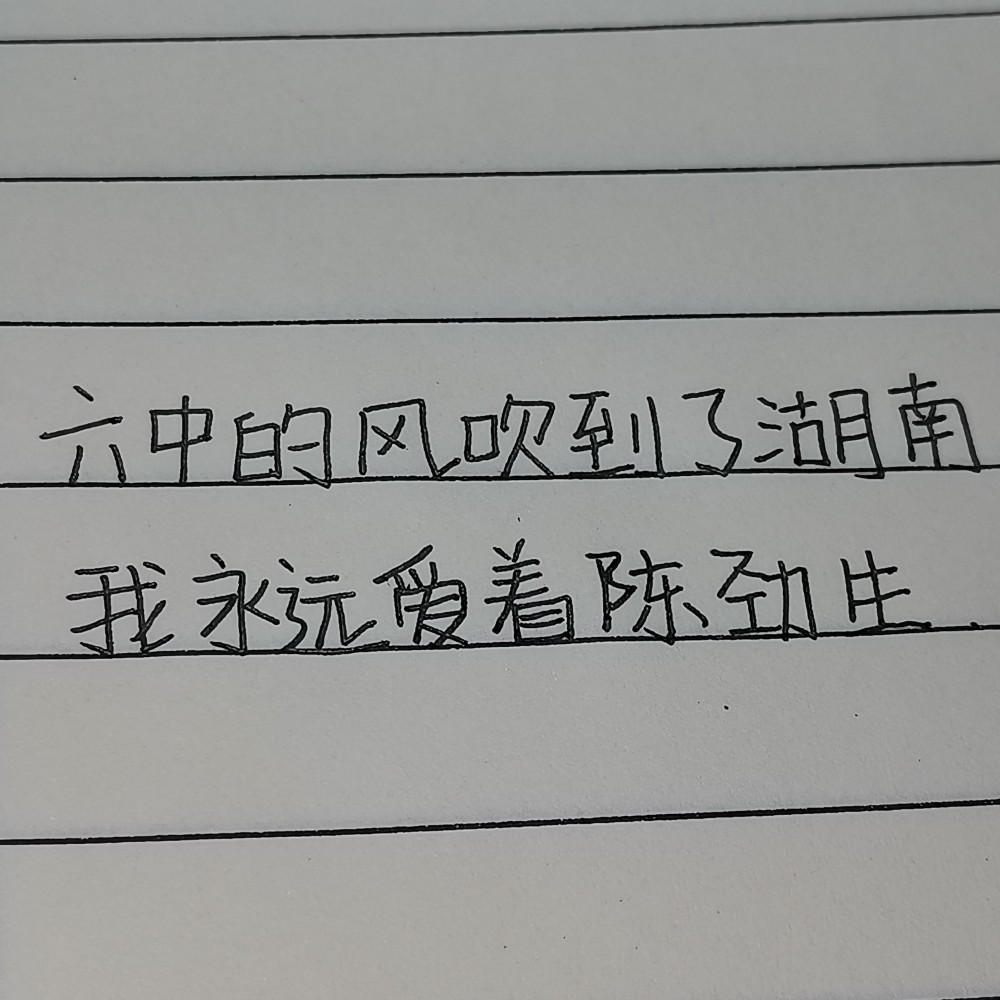 六中的风吹到了湖南
我永远爱着陈劲生